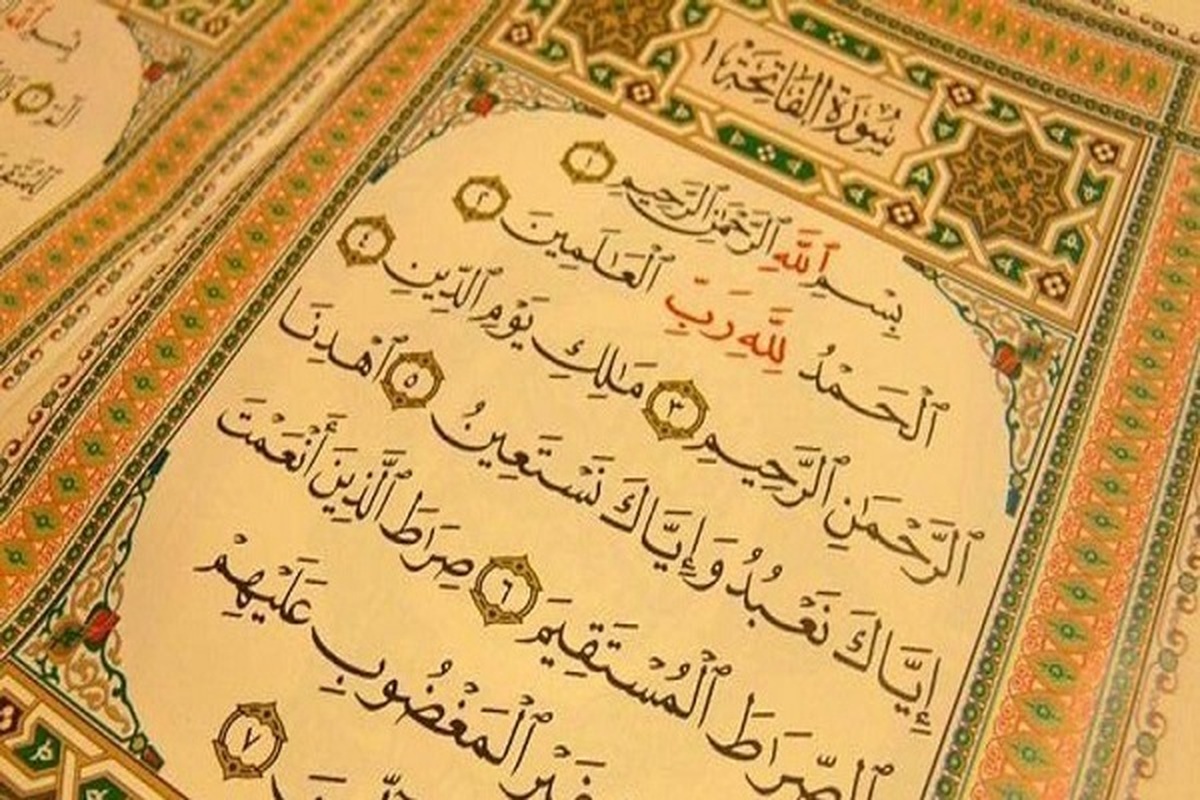 سُورَةُ الفَاتِحَةِ ١
بِسْمِ ٱللَّهِ ٱلرَّحْمَٰنِ ٱلرَّحِيمِ ١
ٱلْحَمْدُ لِلَّهِ رَبِّ ٱلْعَٰلَمِينَ ٢
ٱلرَّحْمَٰنِ ٱلرَّحِيمِ ٣ مَٰلِكِ يَوْمِ ٱلدِّينِ ٤
إِيَّاكَ نَعْبُدُ وَإِيَّاكَ نَسْتَعِينُ ٥ ٱهْدِنَا
ٱلصِّرَٰطَ ٱلْمُسْتَقِيمَ ٦ صِرَٰطَ ٱلَّذِينَ أَنْعَمْتَ
عَلَيْهِمْ غَيْرِ ٱلْمَغْضُوبِ
٧